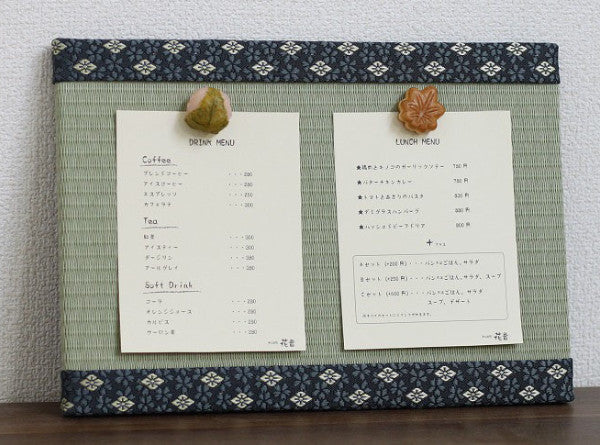 DRINK MENU
Coffee
ブレンドコーヒー ・・・280
アイスコーヒー ・・・280
エスプレッソ ・・・250
カフェラテ ・・・280
Tea
紅茶 ・・・300
アイスティー ・・・300
ダージリン ・・・380
アールグレイ ・・・380
Soft Drink
コーラ ・・・230
オレンジジュース ・・・230
カルピス ・・・230
ウーロン茶 ・・・230
花音
LUNCH MENU
★鶏肉とキノコのガーリックソテー 780円
★バターチキンカレー 780円
★トマトとあさりのパスタ
★デミグラスハンバーグ
★ハッシュドビーフドリア
+
Aセット (+200円)・・・パンorごはん、サラダ
Bセット (+250円)・・・パンorごはん、サラダ、スープ
Cセット ・・・パンorごはん、サラダ
スープ、デザート
花音